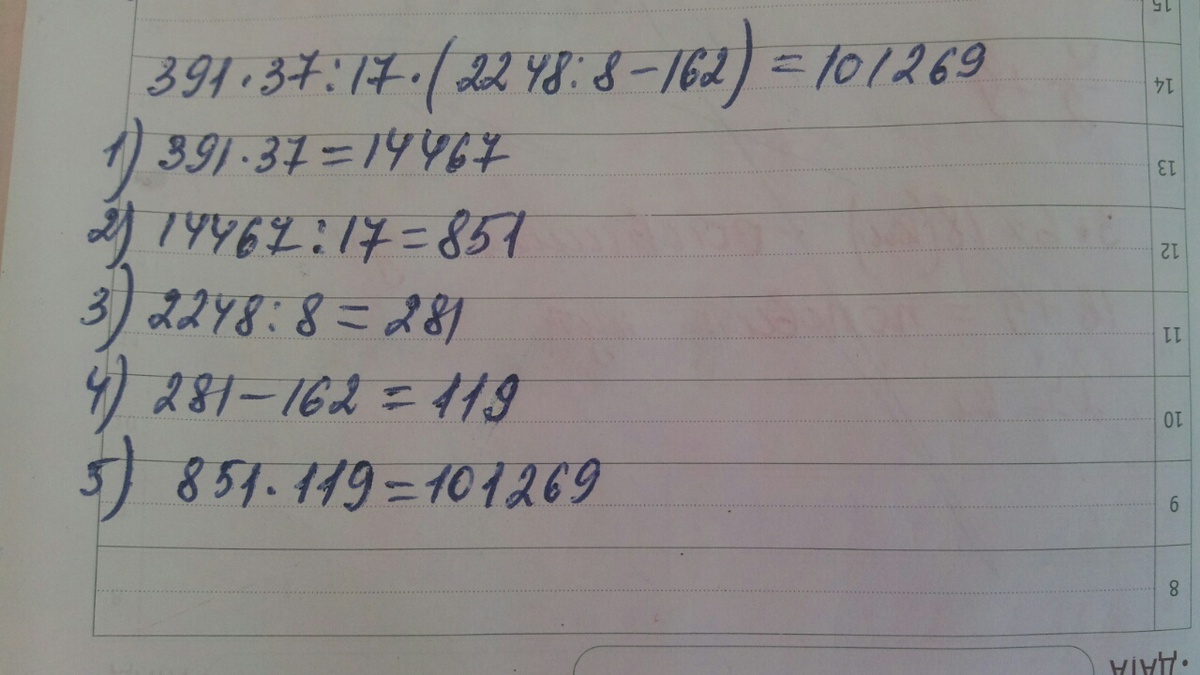 391·37:17·(2248:8-162)=101269
1) 391·37=14467
2) 14467:17=851
3) 2248:8=281
4) 281-162=119
5) 851·119=101269
15
14
13
12
11
10
9
8
•ДАТА